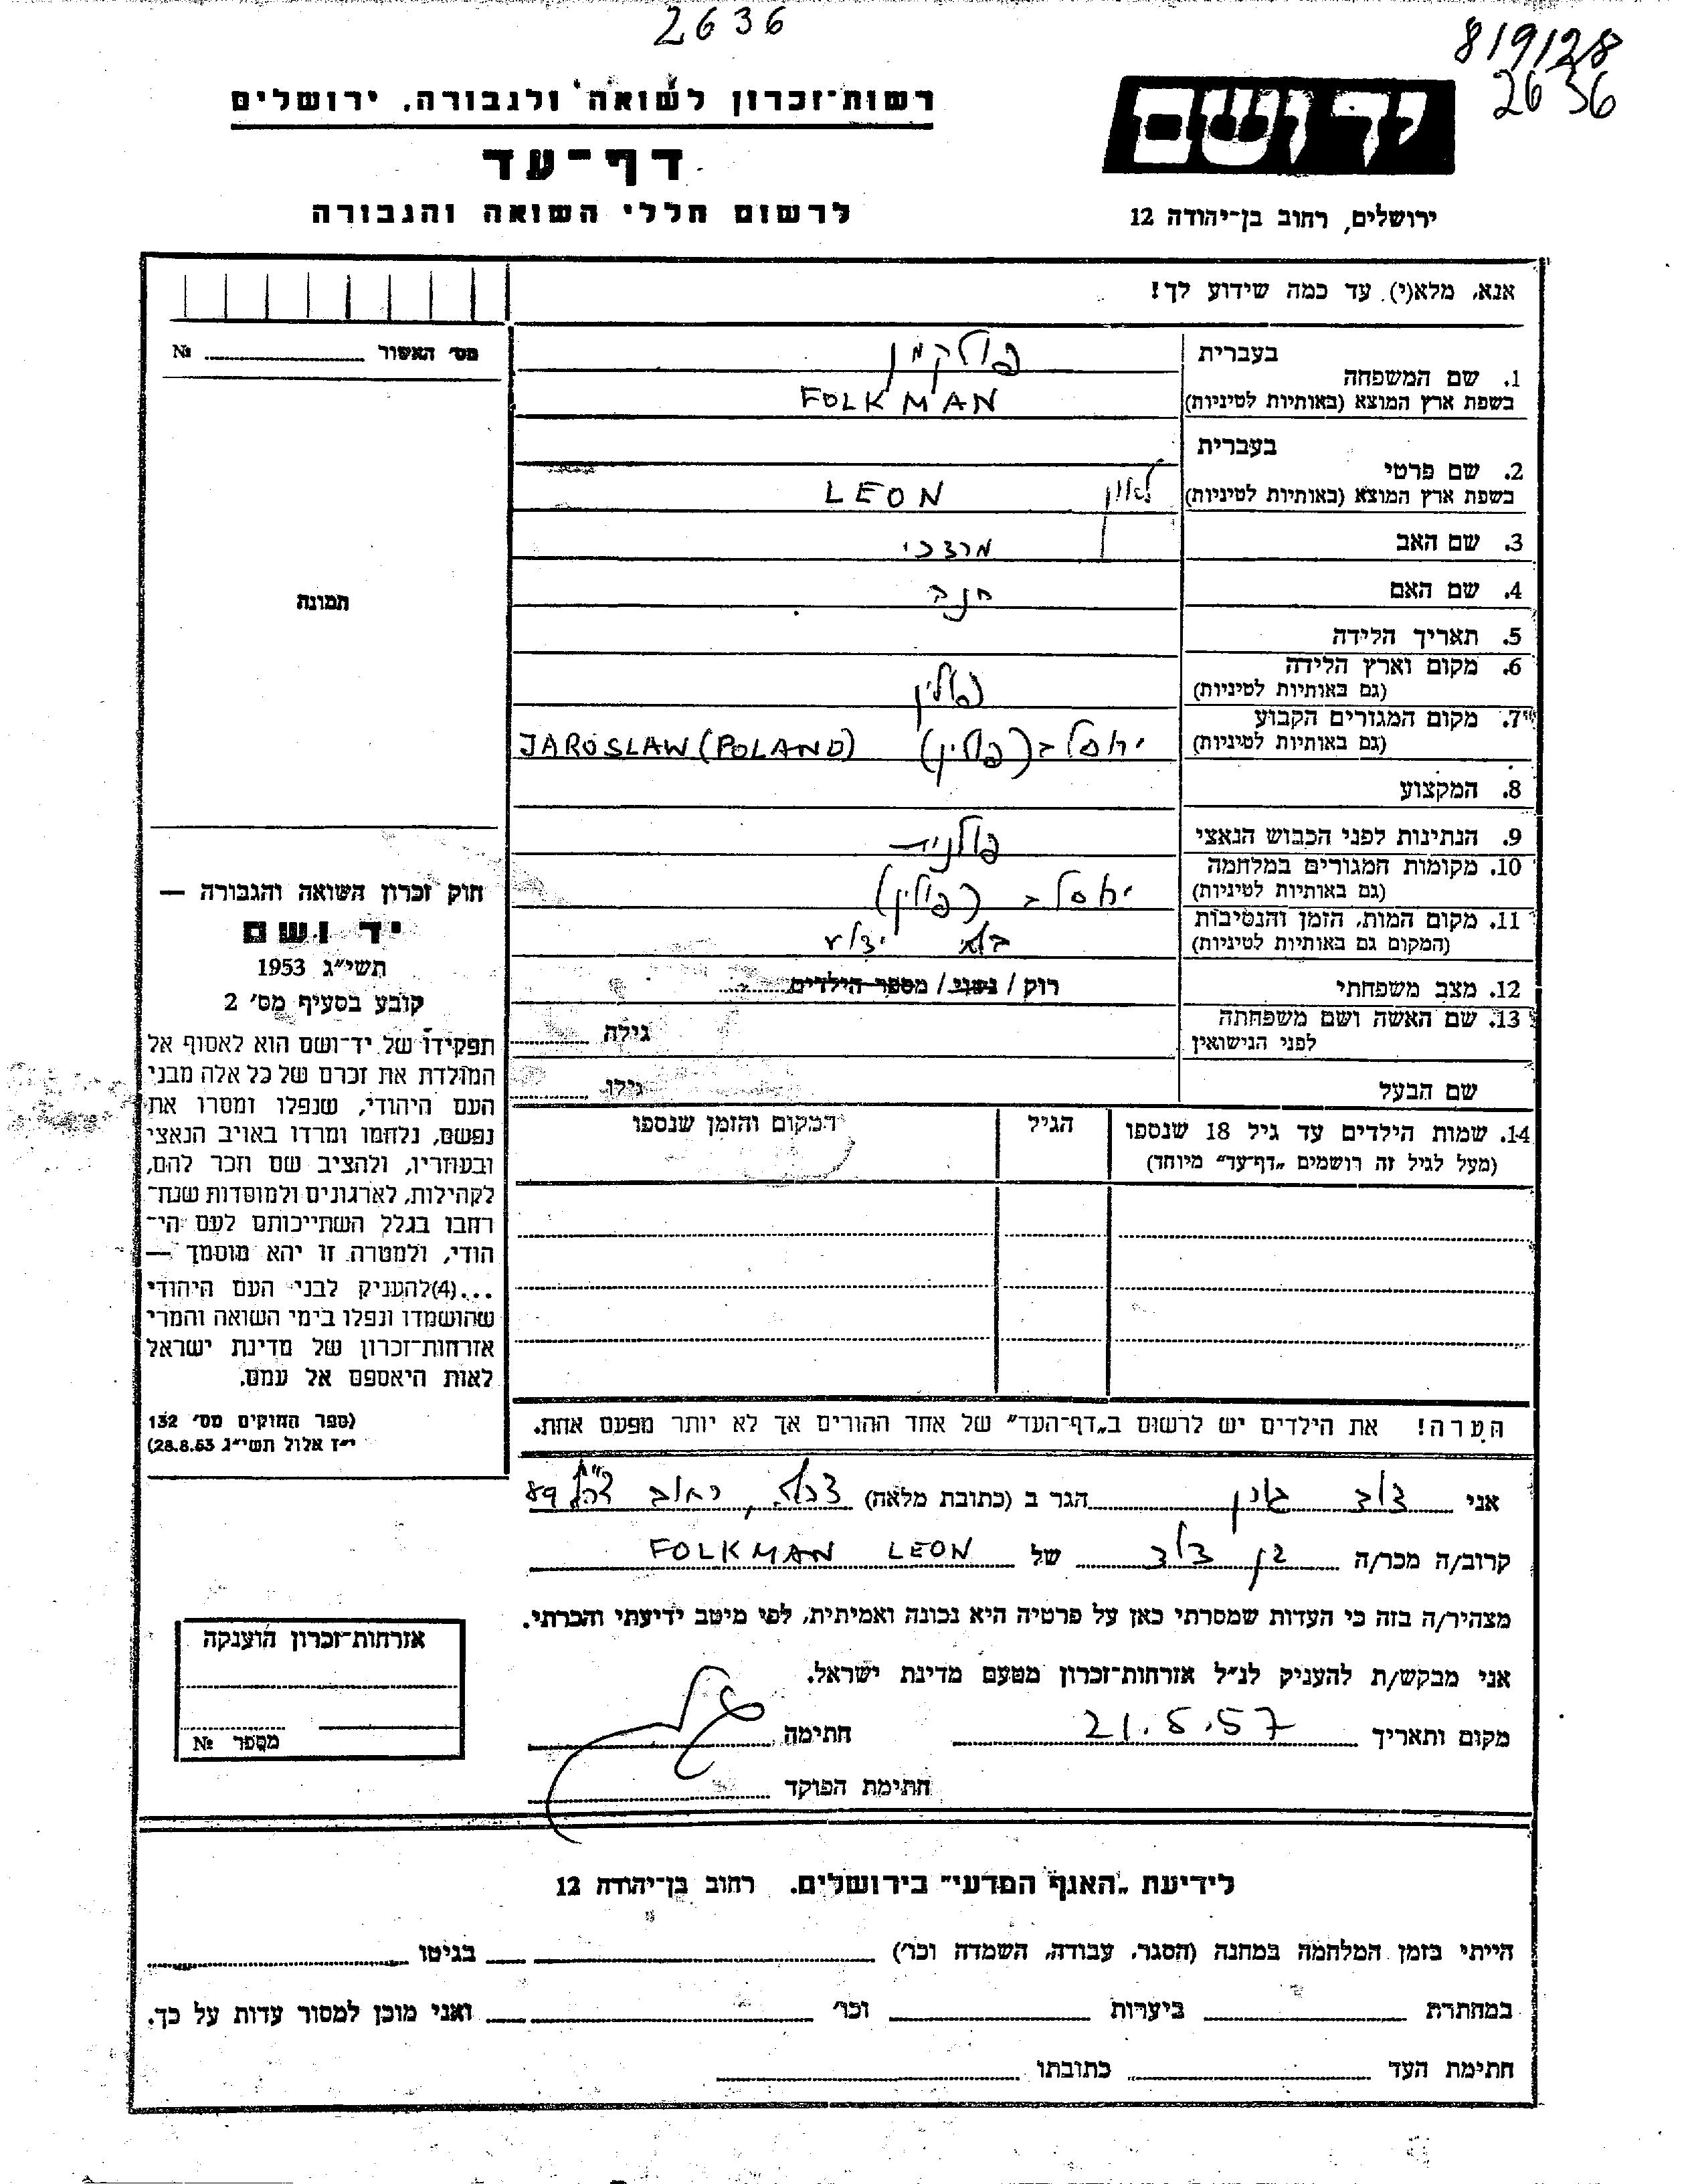 2636
819128
2636
רשות־זכרון לשואה ולגבורה. ירושלים
דף־עד
לרשום חללי השואה והגבורה
יד ושם
ירושלים, רחוב בן־יהודה 12
אנא, מלא(י) עד כמה שידוע לך!
מס׳ האשור № 
1. שם המשפחה
בעברית
פולקמן
בשפת ארץ המוצא (באותיות לטיניות)
FOLKMAN
2. שם פרטי
בעברית
בשפת ארץ המוצא (באותיות לטיניות)
לאון LEON
3. שם האב
מרדכי
4. שם האם
חנה
5. תאריך הלידה
6. מקום וארץ הלידה
(גם באותיות לטיניות)
פולין
7. מקום המגורים הקבוע
(גם באותיות לטיניות)
ירוסלב (פולין) JAROSLAW (POLAND)
8. המקצוע
9. הנתינות לפני הכבוש הנאצי
פולנית
10. מקומות המגורים במלחמה
(גם באותיות לטיניות)
ירוסלב (פולין)
11. מקום המות, הזמן והנסיבות
(המקום גם באותיות לטיניות)
בלתי ידוע
12. מצב משפחתי
רוק / נשוי / מספר הילדים
13. שם האשה ושם משפחתה
לפני הנישואין
גילה
שם הבעל
גילו
14. שמות הילדים עד גיל 18 שנספו
(מעל לגיל זה רושמים „דף־עד״ מיוחד)
הגיל
המקום והזמן שנספו
תמונה
חוק זכרון השואה והגבורה —
יד ושם
תשי״ג 1953
קובע בסעיף מס׳ 2
תפקידו של יד־ושם הוא לאסוף אל
המולדת את זכרם של כל אלה מבני
העם היהודי, שנפלו ומסרו את
נפשם, נלחמו ומרדו באויב הנאצי
ובעוזריו, ולהציב שם וזכר להם,
לקהילות, לארגונים ולמוסדות שנח־
רחבו בגלל השתייכותם לעם הי־
הודי, ולמטרה זו יהא מוסמך —
...(4)להעניק לבני העם היהודי
שהושמדו ונפלו בימי השואה והמרי
אזרחות־זכרון של מדינת ישראל
לאות היאספם אל עמם.
(ספר החוקים מס׳ 132
י״ז אלול תשי״ג 28.8.53)
הערה! את הילדים יש לרשום ב„דף־העד״ של אחד ההורים אך לא יותר מפעם אחת.
אני הגר ב (כתובת מלאה)
קרוב/ה מכר/ה בן דוד של FOLKMAN LEON
מצהיר/ה בזה כי העדות שמסרתי כאן על פרטיה היא נכונה ואמיתית, לפי מיטב ידיעתי והכרתי.
אני מבקש/ת להעניק לנ״ל אזרחות־זכרון מטעם מדינת ישראל.
מקום ותאריך 21.5.57 חתימה
חתימת הפוקד
אזרחות־זכרון הוענקה
מספר №
לידיעת „האגף המדעי״ בירושלים. רחוב בן־יהודה 12
הייתי בזמן המלחמה במחנה (הסגר, עבודה, השמדה וכו׳) בגיטו
במחתרת ביערות וכו׳ ואני מוכן למסור עדות על כך.
חתימת העד כתובתו